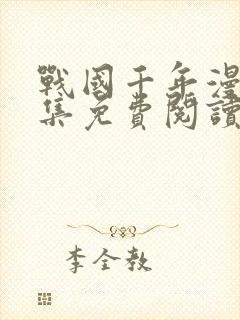 戰國千年漫
集免費閱讀
李全教